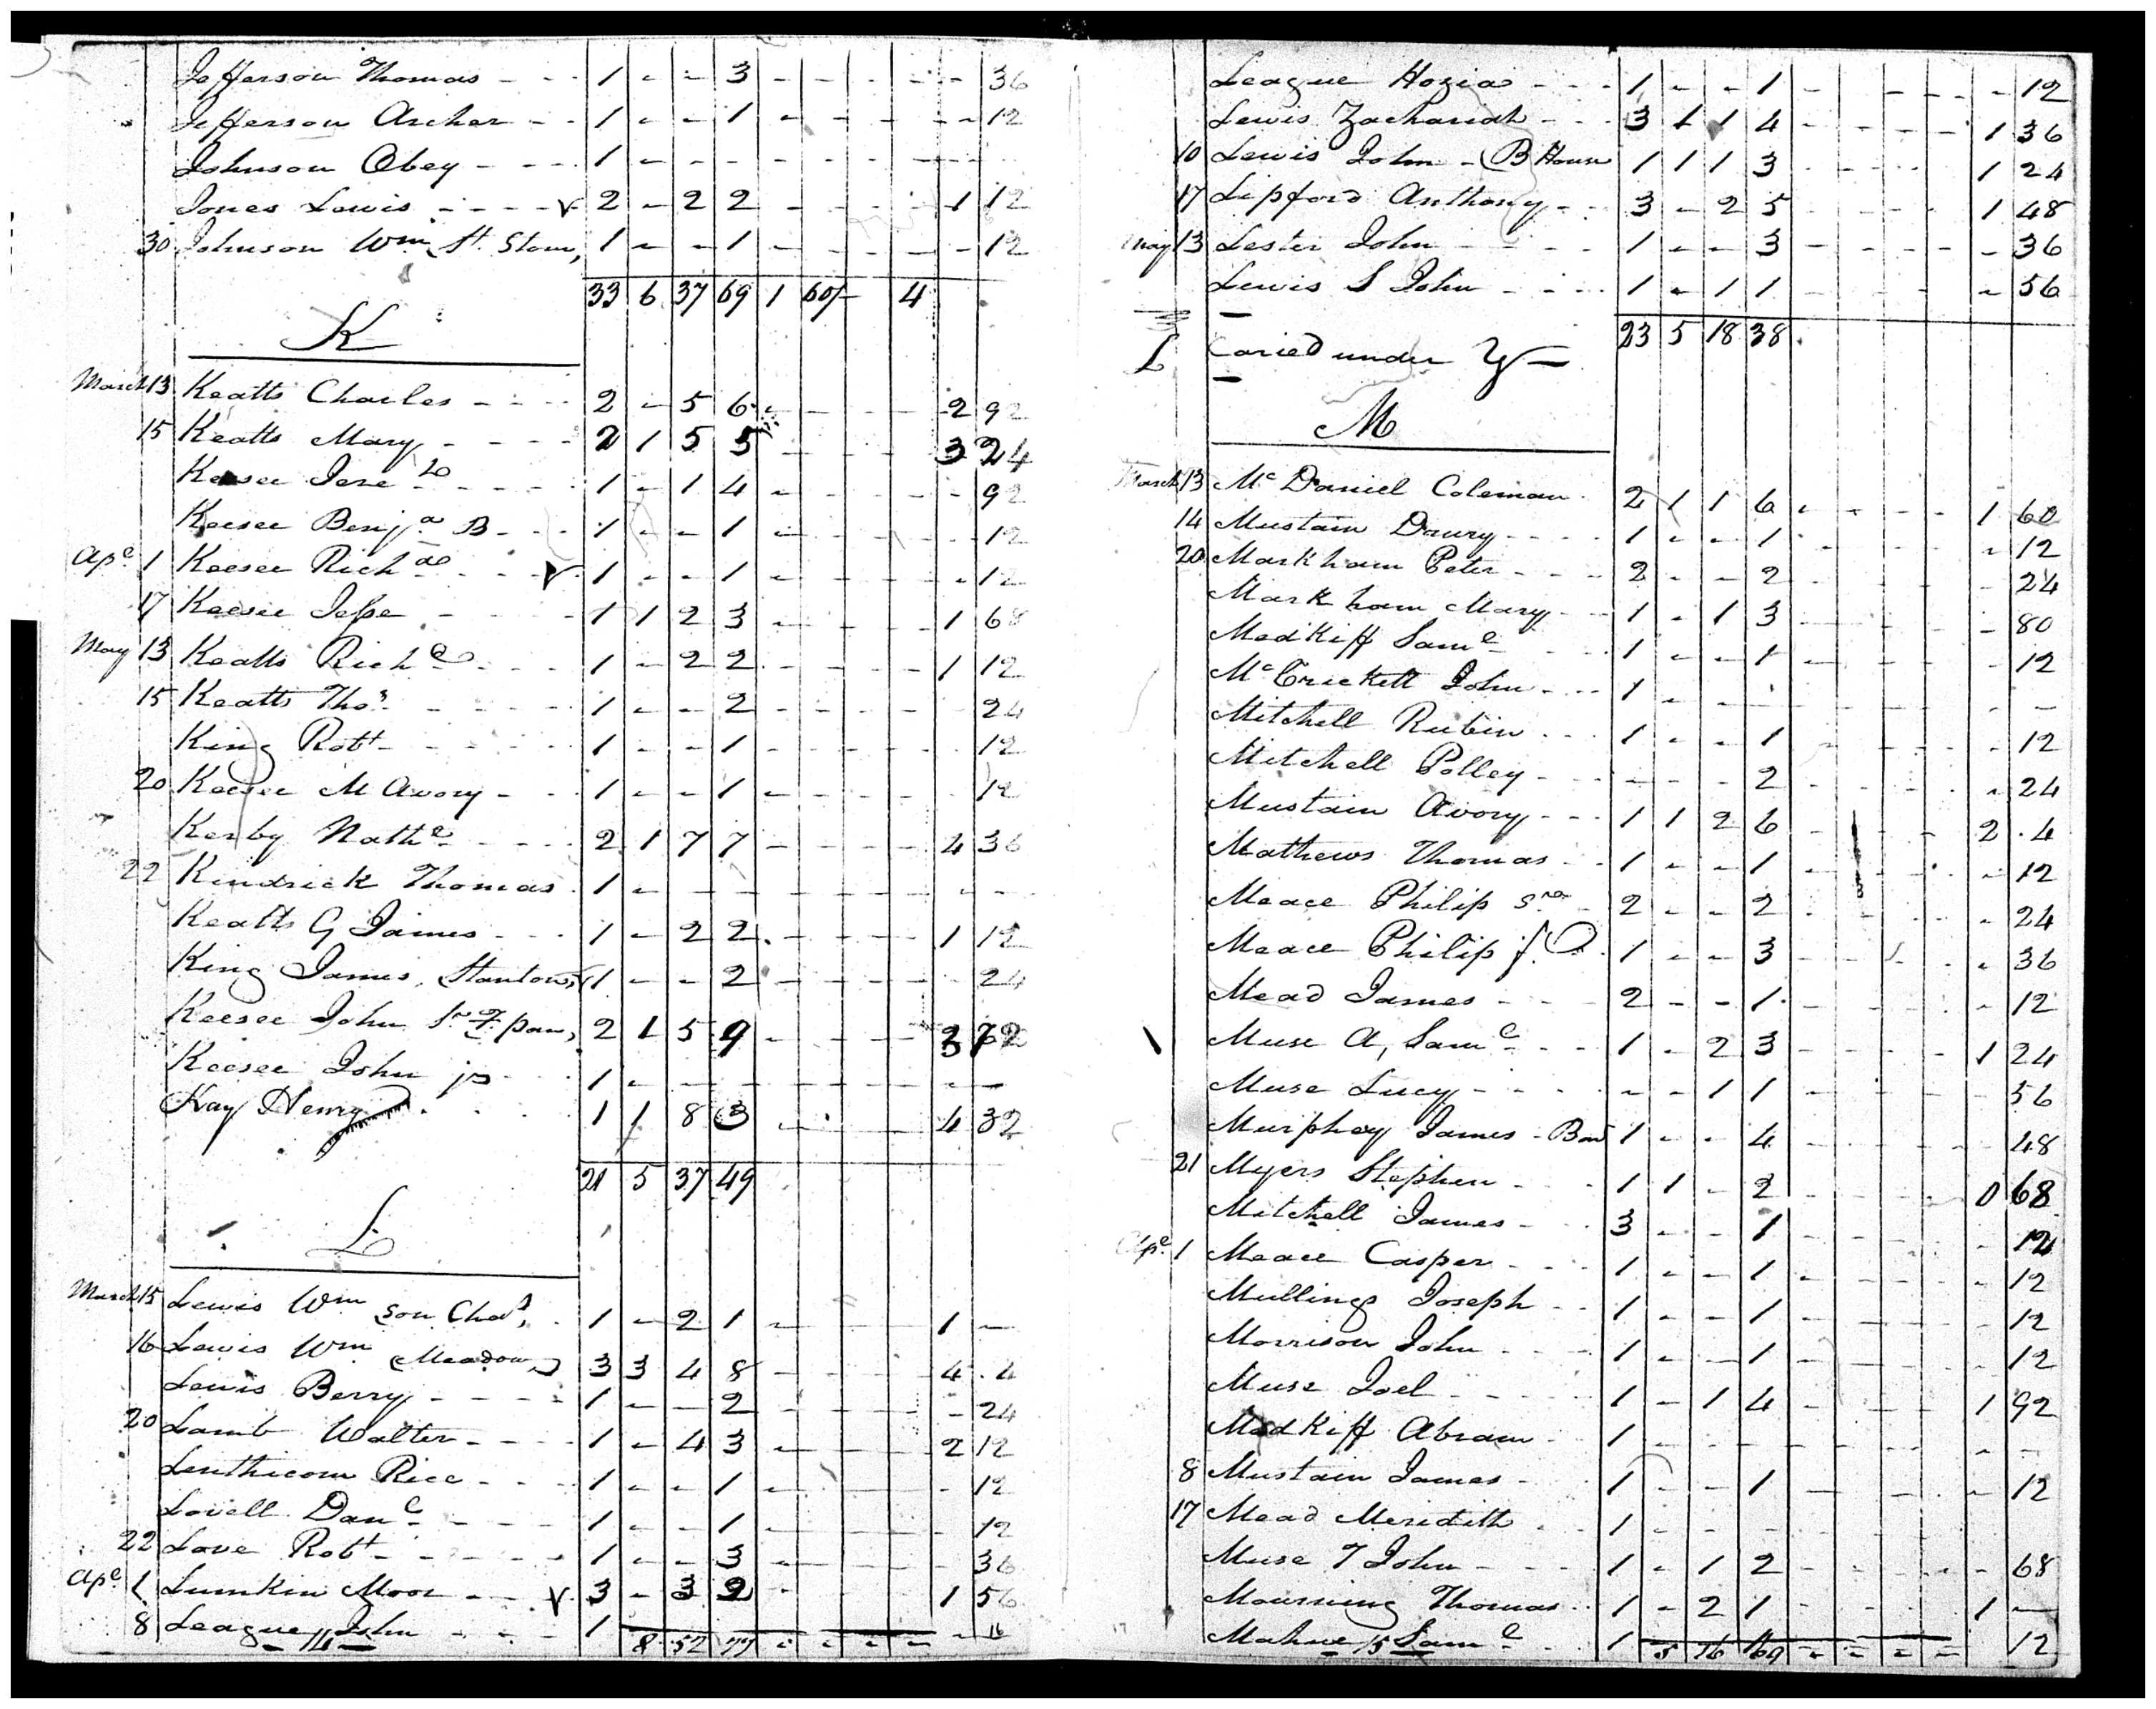 Jefferson Thomas - - 1 - - 3 - - - - - 36
Jefferson Archer - - 1 - - 1 - - - - - 12
Johnson Obey - - - 1 - - - - - - - -
Jones Lewis - - - - v 2 - 2 2 - - - - 1 12
30 Johnson Wm St. Stone, 1 - - 1 - - - - - 12
33 6 37 69 1 60/- 4
K
March 13 Keatts Charles - - - 2 - 5 6 - - - - 2 92
15 Keatts Mary - - - - 2 1 5 5 - - - - 3 24
Keesee Jere - - - - 1 - 1 4 - - - - - 92
Keesee Benja B - - - 1 - - 1 - - - - - 12
Ape 1 Keesee Richd - - - v 1 - - 1 - - - - - 12
17 Keesee Jesse - - - - 1 1 2 3 - - - - 1 68
May 13 Keatts Richd - - - 1 - 2 2 - - - - 1 12
15 Keatts Thos - - - - - 1 - - 2 - - - - - 24
King Robt - - - - - 1 - - 1 - - - - - 12
20 Keesee M Avory - - 1 - - 1 - - - - - 12
Kerby Nathl - - - - 2 1 7 7 - - - - 4 36
22 Kindrick Thomas 1 - - - - - - - - -
Keatts G James - - - 1 - 2 2 - - - - 1 12
King James, Stanton, 1 - - 2 - - - - - 24
Keesee John Sr F pan, 2 1 5 9 - - - - 3 72
Keesee John jr - - 1 - - - - - - - - -
Kay Henry 1 1 8 3 - - - - 4 32
21 5 37 49
L
March 15 Lewis Wm son Chas, 1 - 2 1 - - - - 1 -
16 Lewis Wm (Meadow) 3 3 4 8 - - - - 4 . 4
Lewis Berry - - - - 1 - - 2 - - - - - 24
20 Lamb Walter - - - - 1 - 4 3 - - - - 2 12
Lenthicom Rice - - - 1 - - 1 - - - - - 12
Lovell Danl - - - - 1 - - 1 - - - - - 12
22 Love Robt - - - - - 1 - - 3 - - - - - 36
Ape 1 Lumkin Moor - - - v 3 - 3 2 - - - - 1 56
8 League John - - - 1
14 8 52 77 - - - - - 16
League Hozia - - - 1 - - 1 - - - - - 12
Lewis Zachariah - - - 3 1 1 4 - - - - 1 36
10 Lewis John - (B House 1 1 1 3 - - - - 1 24
17 Lipford Anthony - - 3 - 2 5 - - - - 1 48
May 13 Lester John - - - - 1 - - 3 - - - - - 36
Lewis S John - - - - 1 - 1 1 - - - - - 56
23 5 18 38
L Caried under Y -
M
March 13 Mc Daniel Coleman 2 1 1 6 - - - - 1 60
14 Mustain Drury - - - - 1 - - 1 - - - - - 12
20 Markham Peter - - - 2 - - 2 - - - - - 24
Markham Mary - - 1 - 1 3 - - - - - 80
Madkiff Saml - - - 1 - - 1 - - - - - 12
Mc Crickett John - - - 1 - - - - - - - - -
Mitchell Rubin - - - 1 - - 1 - - - - - 12
Mitchell Polley - - - - - 2 - - - - - 24
Mustain Avory - - - 1 1 2 6 - - - - 2 . 4
Mathews Thomas - - 1 - - 1 - - - - - 12
Meace Philip Sr - 2 - - 2 - - - - - 24
Meace Philip jr 1 - - 3 - - - - - 36
Mead James - - - 2 - - 1 - - - - - 12
Muse A, Saml - - - 1 - 2 3 - - - - 1 24
Muse Lucy - - - - - - 1 1 - - - - - 56
Murphey James - Ban 1 - - 4 - - - - - 48
21 Myers Stephen - - - 1 1 - 2 - - - - 0 68
Mitchell James - - - 3 - - 1 - - - - - 12
Ape 1 Meace Casper - - - 1 - - 1 - - - - - 12
Mullings Joseph - - 1 - - 1 - - - - - 12
Morrison John - - - 1 - - 1 - - - - - 12
Muse Joel - - - - 1 - 1 4 - - - - 1 92
Madkiff Abram - 1 - - - - - - - - -
8 Mustain James - - 1 - - 1 - - - - - 12
17 Mead Meridith - - 1 - - - - - - -
Muse T John - - - - 1 - 1 2 - - - - - 68
Mourning Thomas - - 1 - 2 1 - - - - 1 -
Mahue Saml - - 1
15 5 16 69 - - - - 12